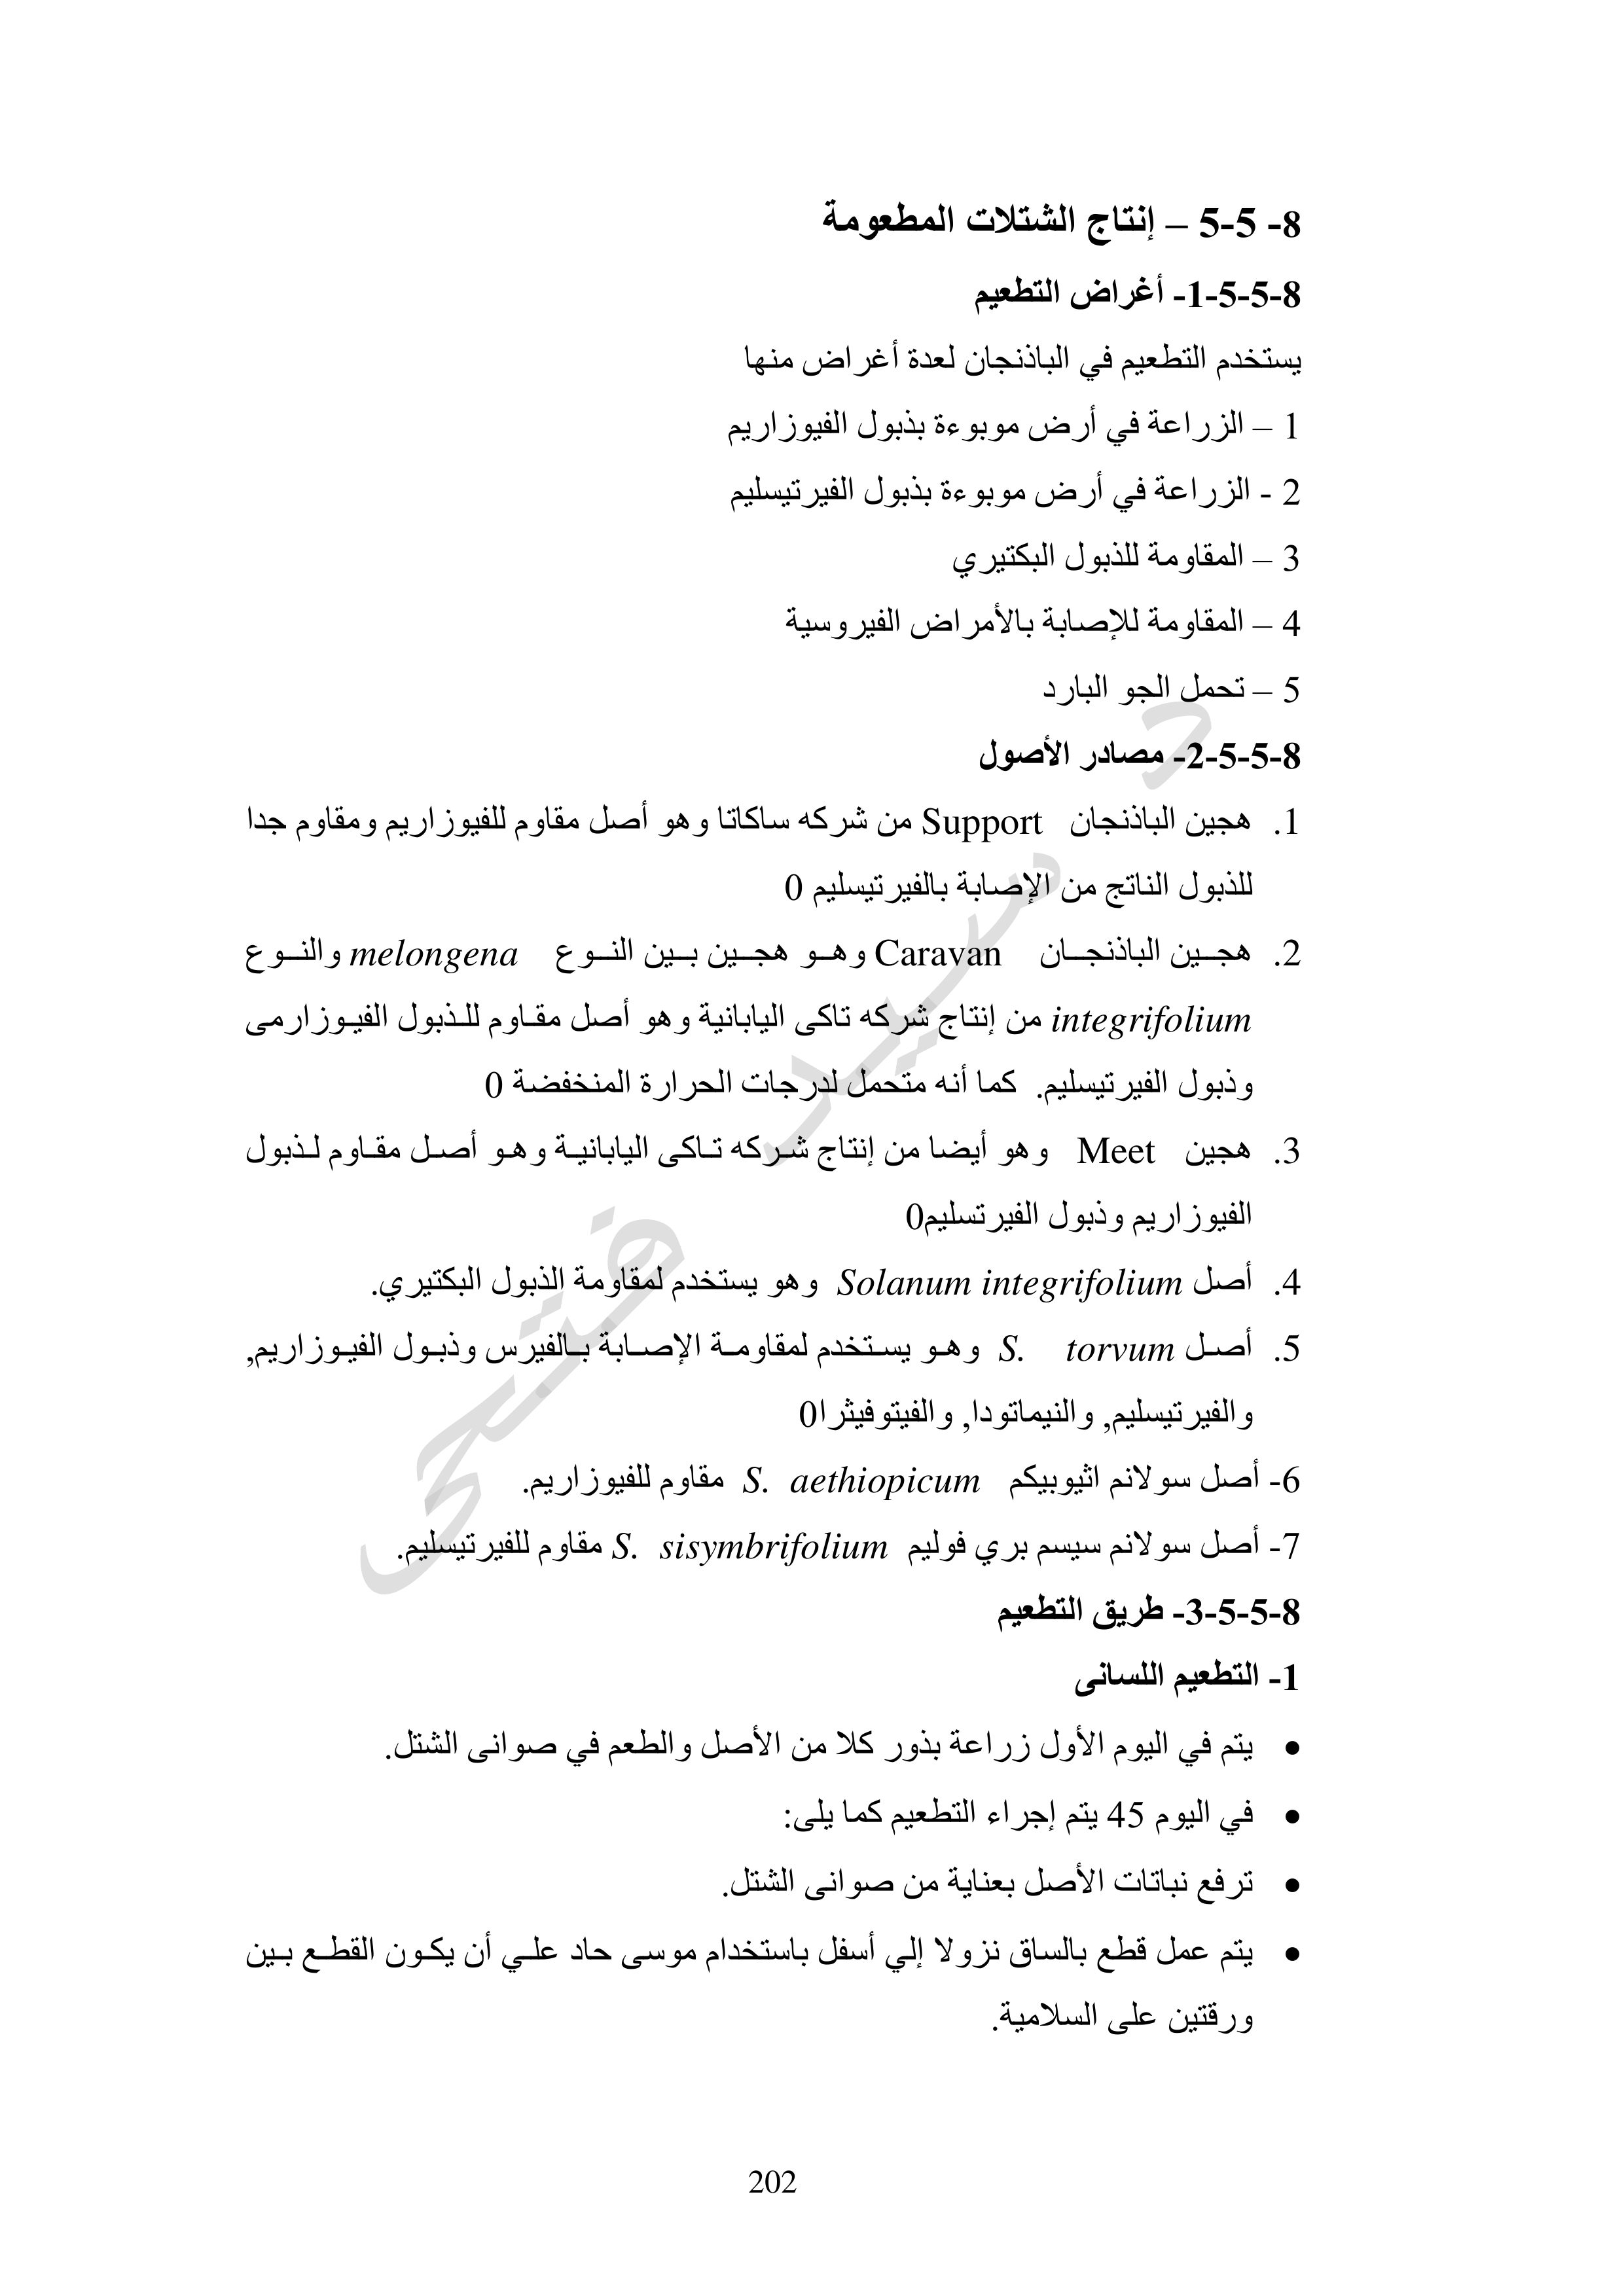 8- 5-5 – إنتاج الشتلات المطعومة
8-5-5-1- أغراض التطعيم
يستخدم التطعيم في الباذنجان لعدة أغراض منها
1 – الزراعة في أرض موبوءة بذبول الفيوزاريم
2 - الزراعة في أرض موبوءة بذبول الفيرتيسليم
3 – المقاومة للذبول البكتيري
4 – المقاومة للإصابة بالأمراض الفيروسية
5 – تحمل الجو البارد
8-5-5-2- مصادر الأصول
1. هجين الباذنجان Support من شركه ساكاتا وهو أصل مقاوم للفيوزاريم ومقاوم جدا
للذبول الناتج من الإصابة بالفيرتيسليم 0
2. هجين الباذنجان Caravan وهو هجين بين النوع melongena والنوع
integrifolium من إنتاج شركه تاكى اليابانية وهو أصل مقاوم للذبول الفيوزارمى
وذبول الفيرتيسليم. كما أنه متحمل لدرجات الحرارة المنخفضة 0
3. هجين Meet وهو أيضا من إنتاج شركه تاكى اليابانية وهو أصل مقاوم لذبول
الفيوزاريم وذبول الفيرتسليم0
4. أصل Solanum integrifolium وهو يستخدم لمقاومة الذبول البكتيري.
5. أصل S. torvum وهو يستخدم لمقاومة الإصابة بالفيرس وذبول الفيوزاريم,
والفيرتيسليم, والنيماتودا, والفيتوفيثرا0
6- أصل سولانم اثيوبيكم S. aethiopicum مقاوم للفيوزاريم.
7- أصل سولانم سيسم بري فوليم S. sisymbrifolium مقاوم للفيرتيسليم.
8-5-5-3- طريق التطعيم
1- التطعيم اللسانى
• يتم في اليوم الأول زراعة بذور كلا من الأصل والطعم في صوانى الشتل.
• في اليوم 45 يتم إجراء التطعيم كما يلى:
• ترفع نباتات الأصل بعناية من صوانى الشتل.
• يتم عمل قطع بالساق نزولا إلي أسفل باستخدام موسى حاد علي أن يكون القطع بين
ورقتين على السلامية.
202
د سيد فتحى